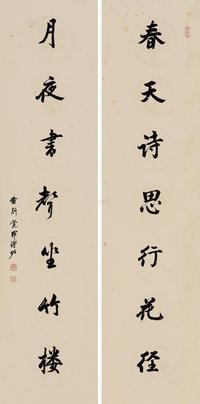 春天诗思行花径
月夜書聲坐竹楼